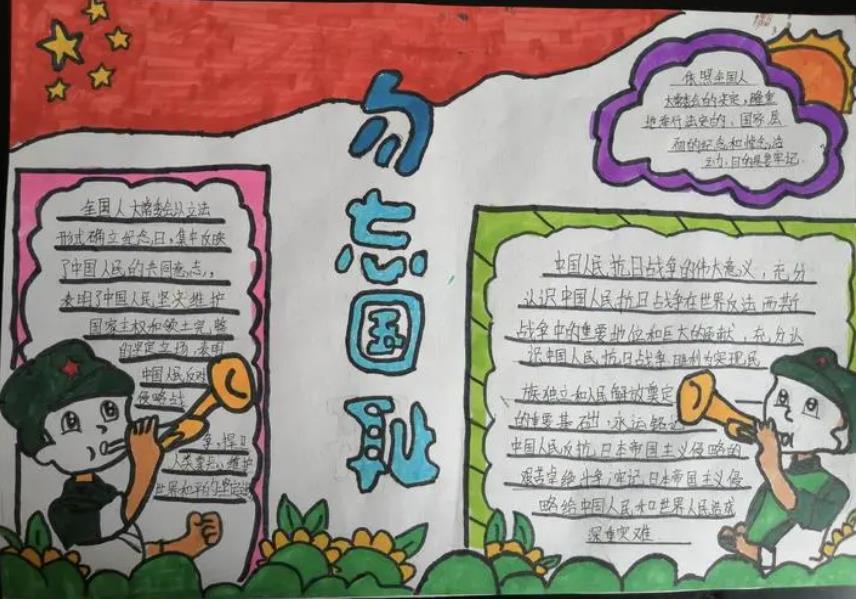 勿忘国耻
全国人大常委会以立法
形式确立纪念日,集中反映
了中国人民的共同意志,
表明了中国人民坚决维护
国家主权和领土完整
的坚定立场,表明
中国人民反对
侵略战
争,捍卫
人类尊严,维护
世界和平的坚定
依照全国人
大常委会的决定,隆重
地举行法定的、国家层
面的纪念和悼念活
动,目的是要牢记
中国人民抗日战争的伟大意义,充分
认识中国人民抗日战争在世界反法西斯
战争中的重要地位和巨大的贡献,充分认
识中国人民抗日战争胜利为实现民
族独立和人民解放奠定
的重要基础,永远铭记
中国人民反抗日本帝国主义侵略的
艰苦卓绝斗争;牢记日本帝国主义侵
略给中国人民和世界人民造成
深重灾难